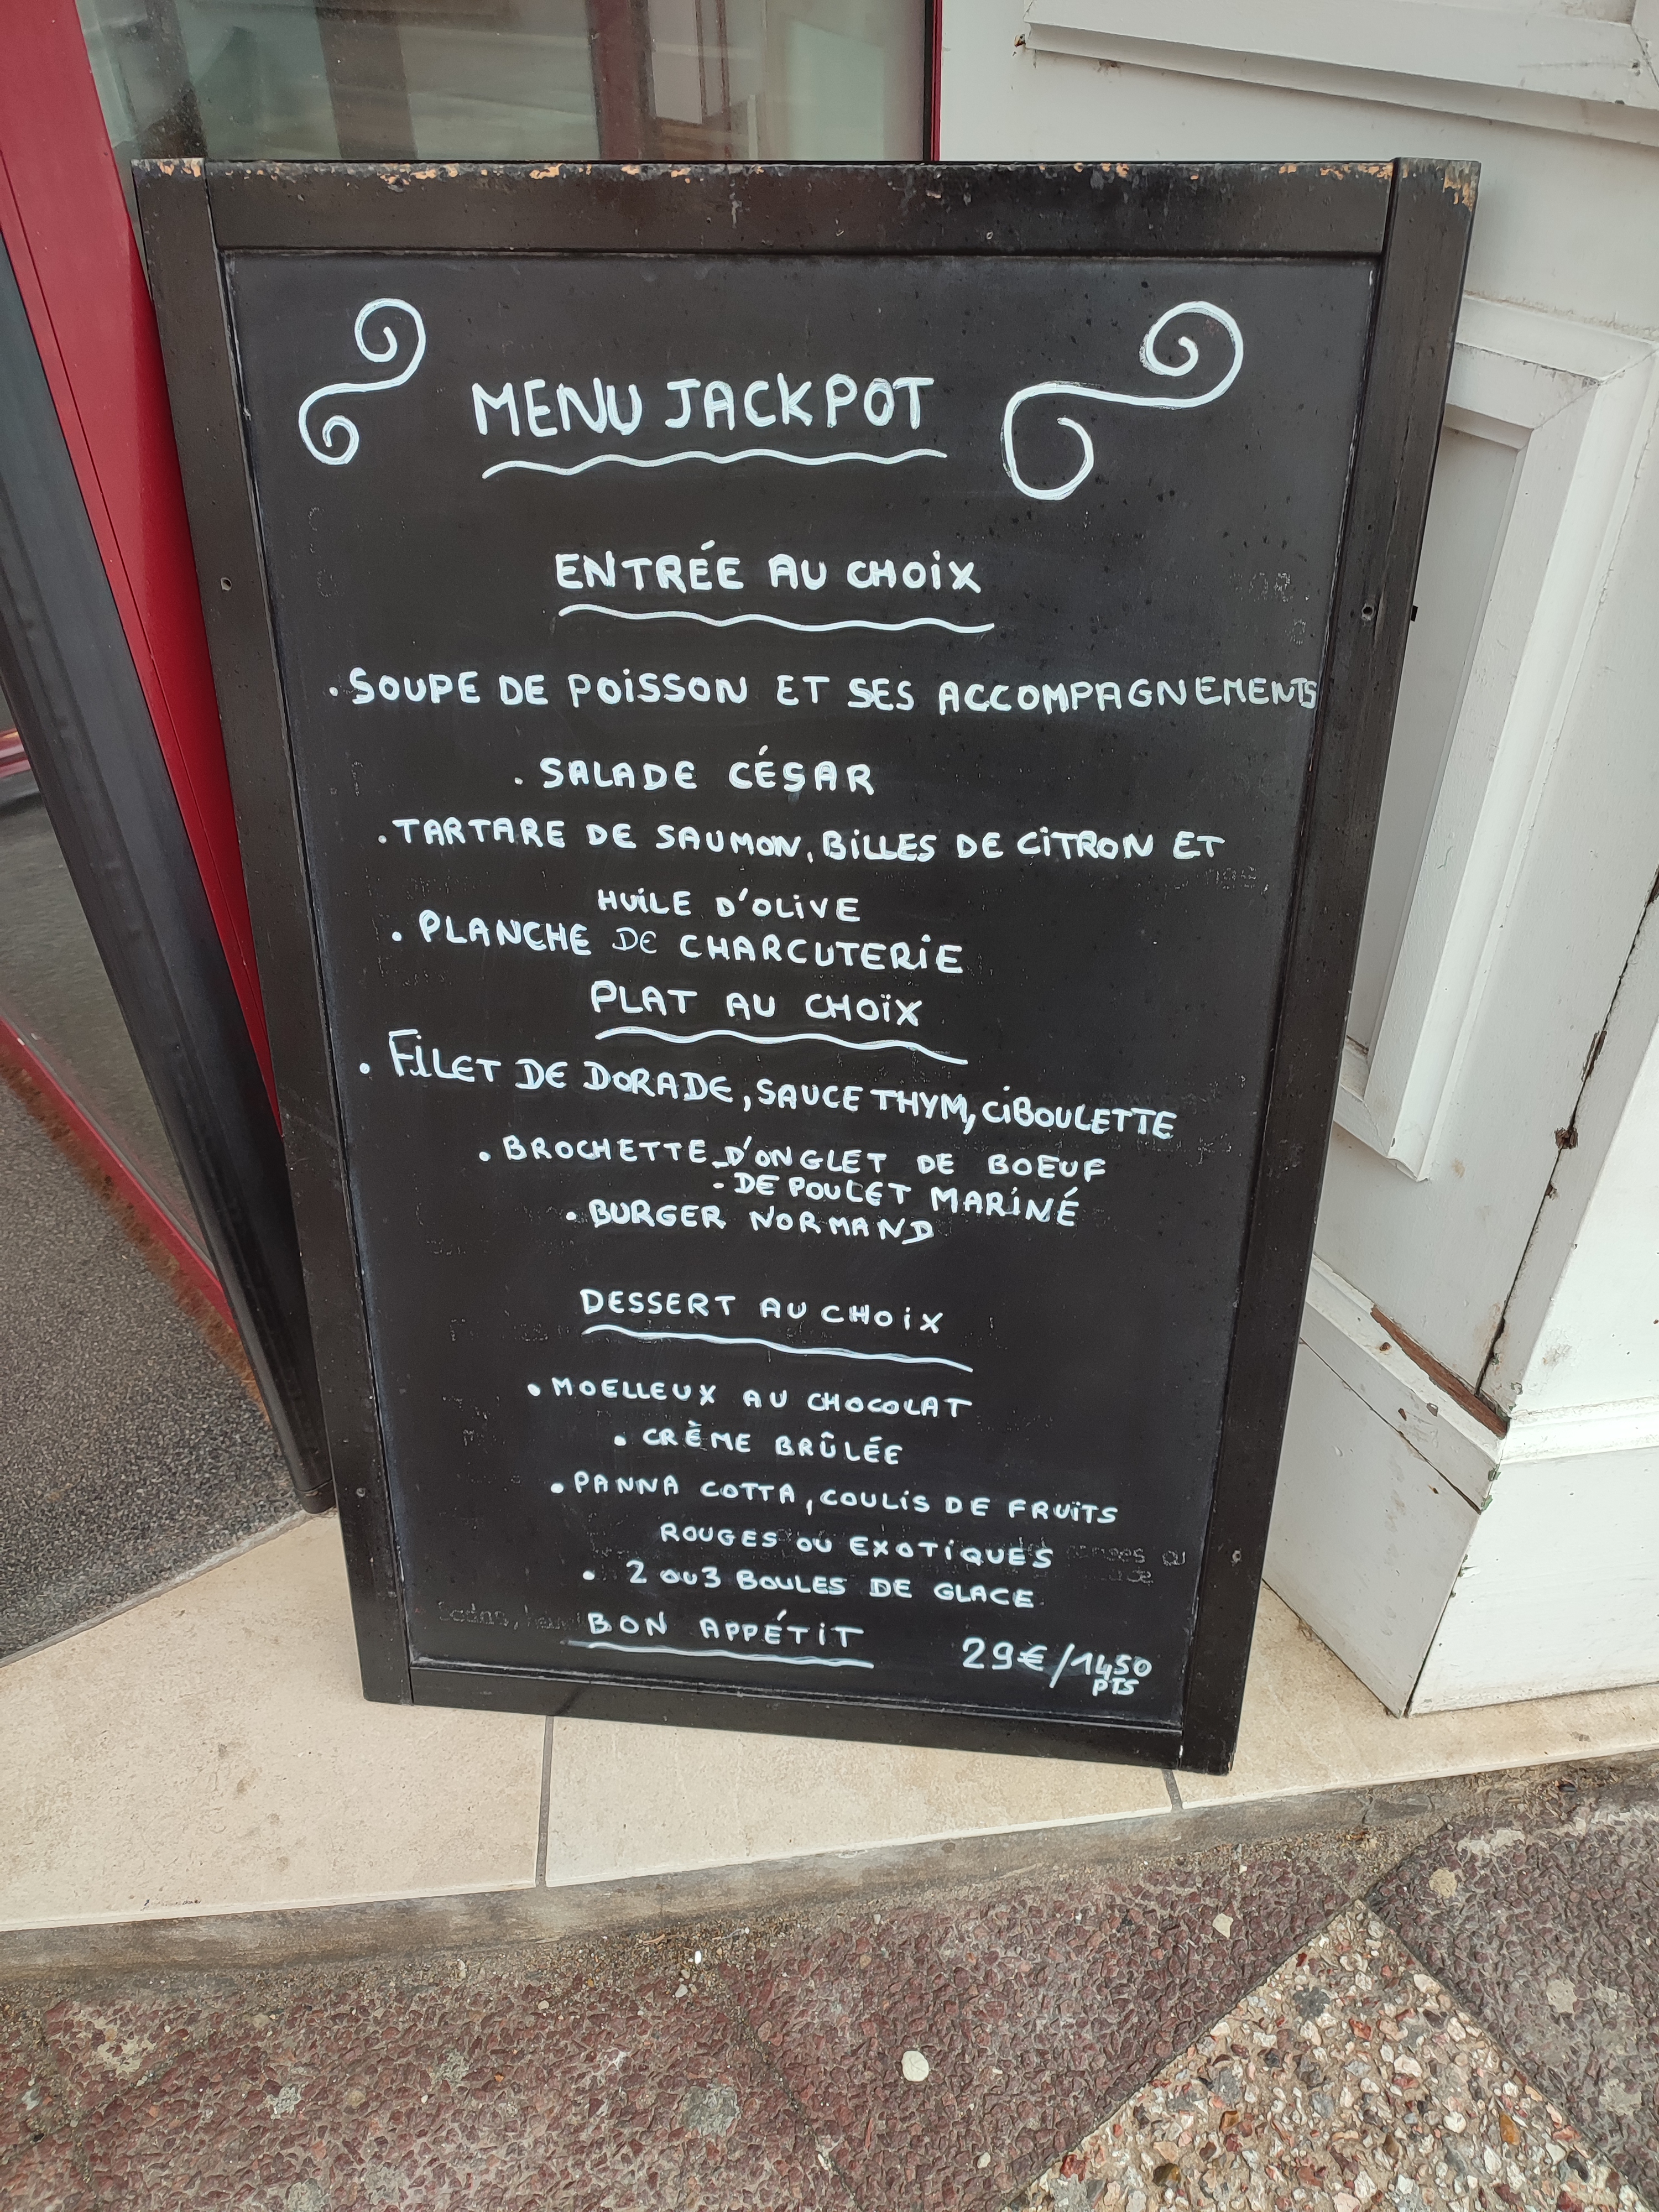 MENU JACKPOT
ENTRÉE AU CHOIX
. SOUPE DE POISSON ET SES ACCOMPAGNEMENTS
. SALADE CÉSAR
. TARTARE DE SAUMON, BILLES DE CITRON ET
HUILE D'OLIVE
. PLANCHE DE CHARCUTERIE
PLAT AU CHOÏX
. FILET DE DORADE, SAUCE THYM, CIBOULETTE
. BROCHETTE - D'ONGLET DE BOEUF
- DE POULET MARINÉ
. BURGER NORMAND
DESSERT AU CHOIX
. MOELLEUX AU CHOCOLAT
. CRÈME BRÛLÉE
. PANNA COTTA, COULIS DE FRUÏTS
ROUGES OU EXOTIQUES
. 2 OU 3 BOULES DE GLACE
BON APPÉTIT
29€/1450
PTS